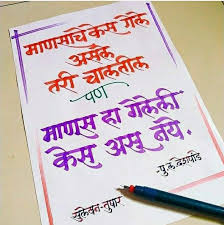 माणसाचे केस गेले
असले
तरी चालतील
पण
माणूस हा गेलेली
केस असू नये.
-पु.ल.देशपांडे
सुलेखन-तुषार